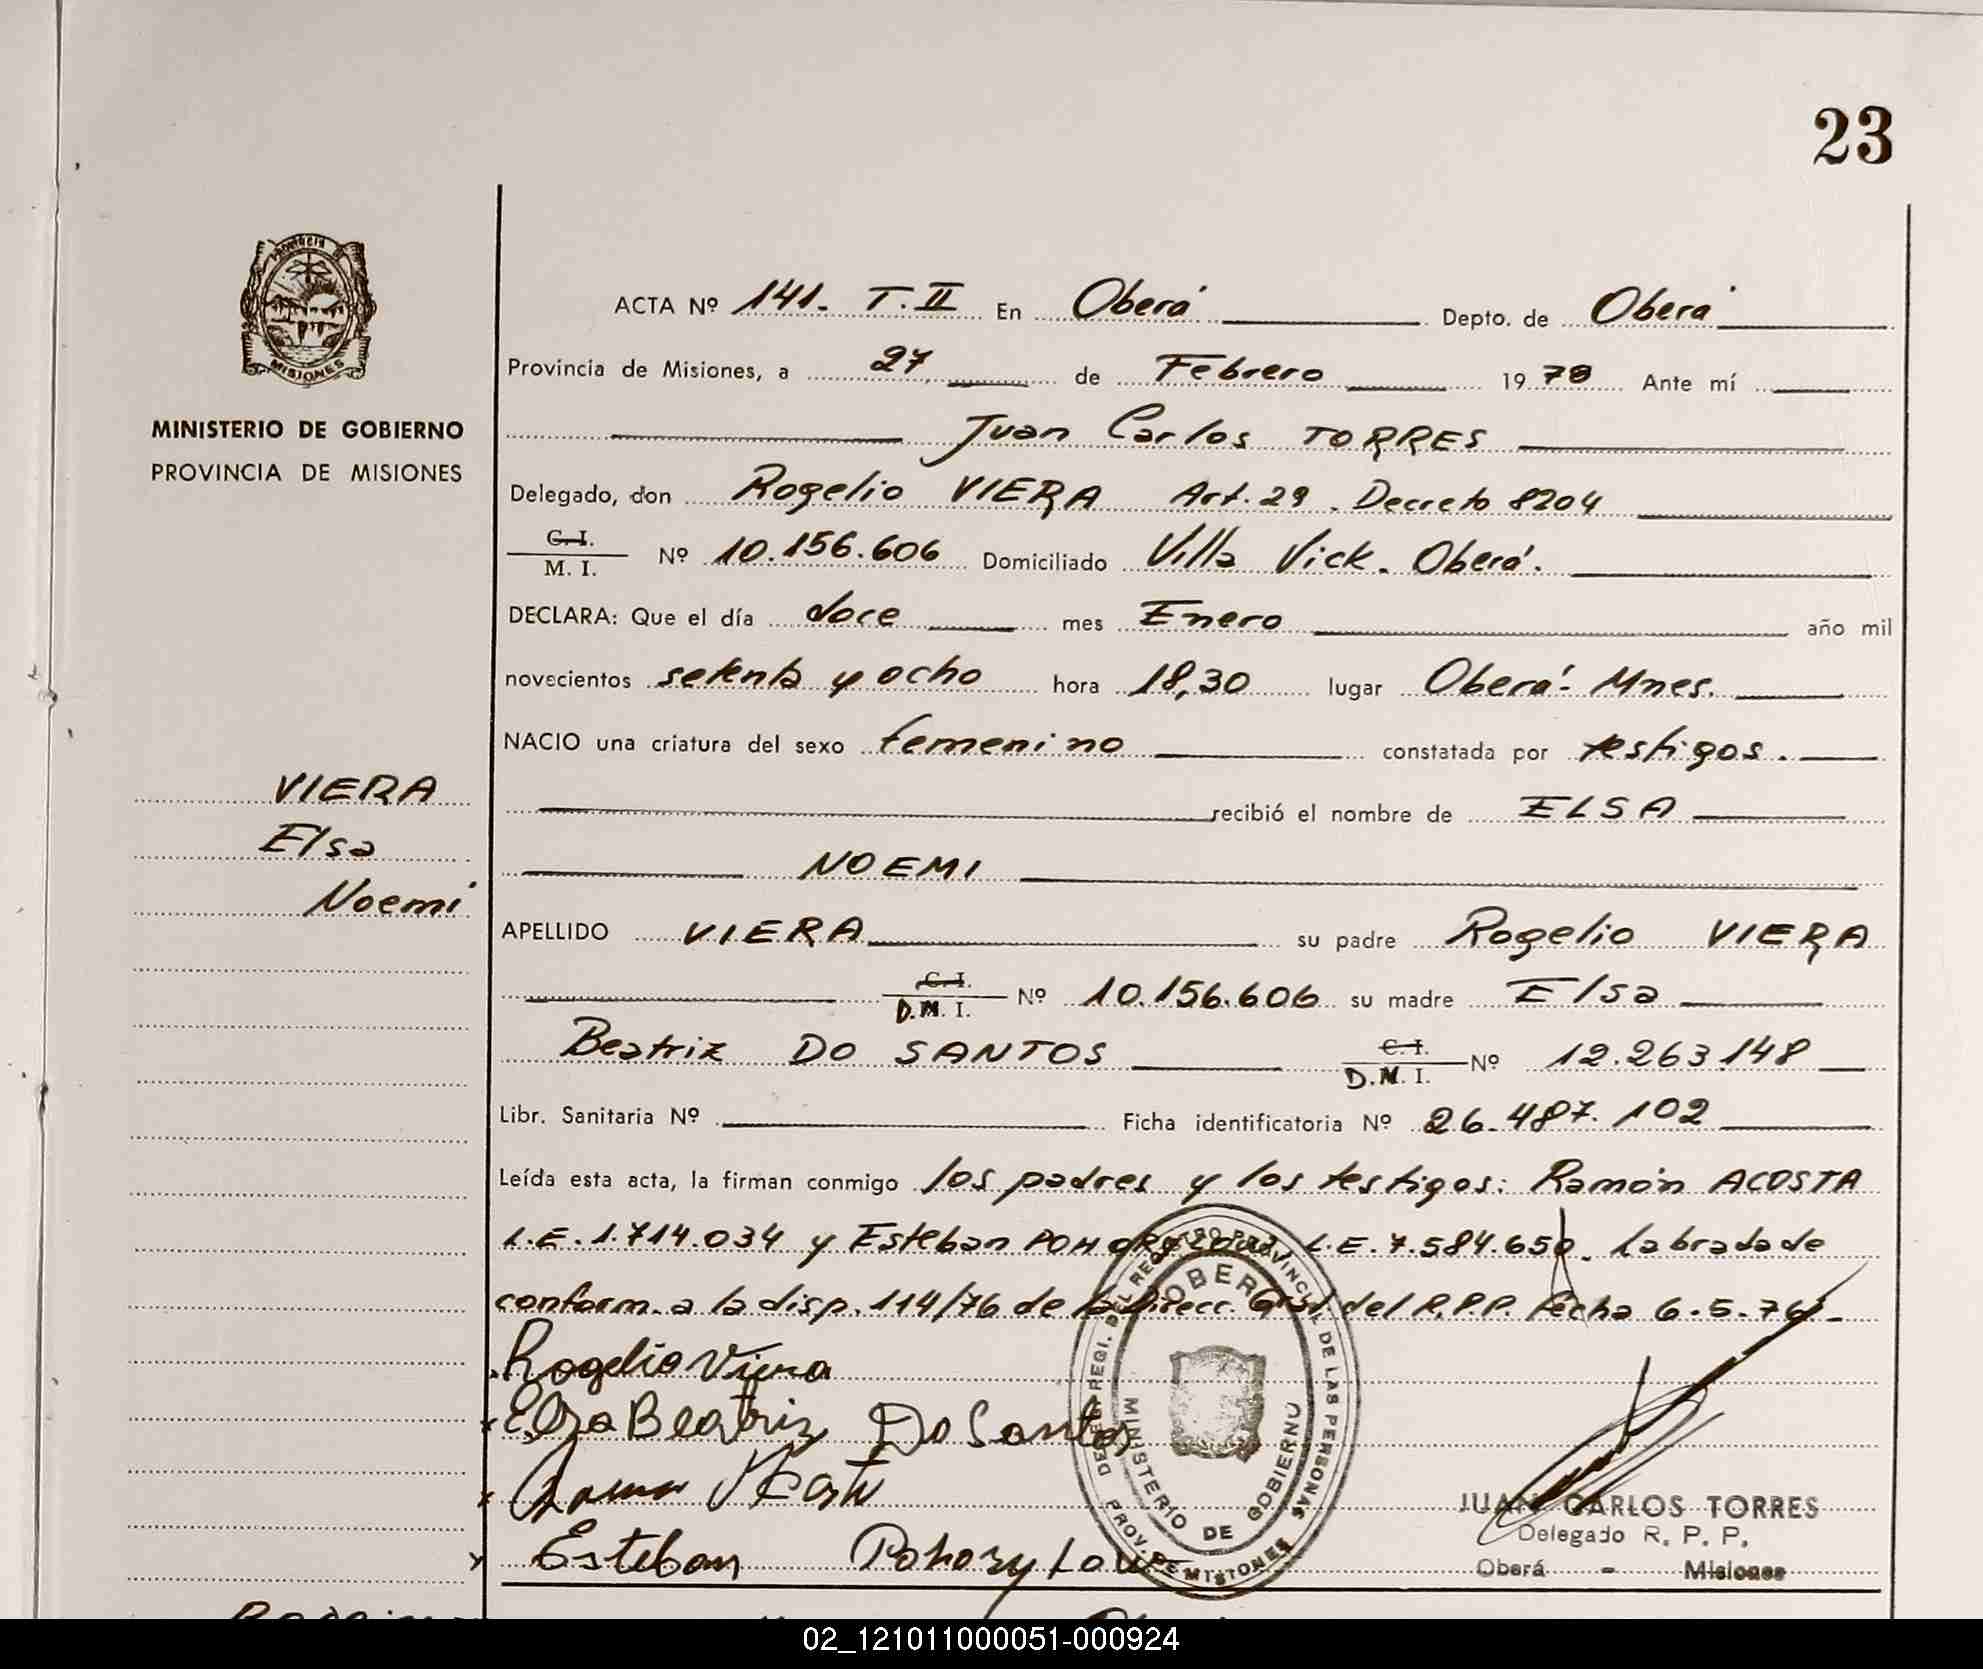 23
PROVINCIA
MISIONES
MINISTERIO DE GOBIERNO
PROVINCIA DE MISIONES
VIERA
Elsa
Noemi
ACTA Nº 141. T. II En Oberá Depto. de Oberá
Provincia de Misiones, a 27 de Febrero 1978 Ante mí
Juan Carlos TORRES
Delegado, don Rogelio VIERA Art. 29. Decreto 8204
C. I.
M. I. Nº 10.156.606 Domiciliado Villa Vick. Oberá.
DECLARA: Que el día doce mes Enero año mil
novecientos setenta y ocho hora 18,30 lugar Oberá - Mnes.
NACIO una criatura del sexo femenino constatada por testigos.
recibió el nombre de ELSA
NOEMI
APELLIDO VIERA su padre Rogelio VIERA
C. I.
D.N. I. Nº 10.156.606 su madre Elsa
Beatriz DO SANTOS C. I.
D.N. I. Nº 12.263.148
Libr. Sanitaria Nº Ficha identificatoria Nº 26.487.102
Leída esta acta, la firman conmigo los padres y los testigos: Ramón ACOSTA
L.E. 1.714.034 y Esteban L.E. 7.584.650. Labrada de
conform. a la disp. 114/76 de la Direcc. Gral. del R.P.P. fecha 6.5.76.-
Rogelio Viera
Elsa Beatriz Do Santos
Esteban Pohorylow
DEL REGISTRO PROVINCIAL DE LAS PERSONAS
OBERA
MINISTERIO DE GOBIERNO
PROV. DE MISIONES
JUAN CARLOS TORRES
Delegado R. P. P.
Oberá - Misiones
02_121011000051-000924